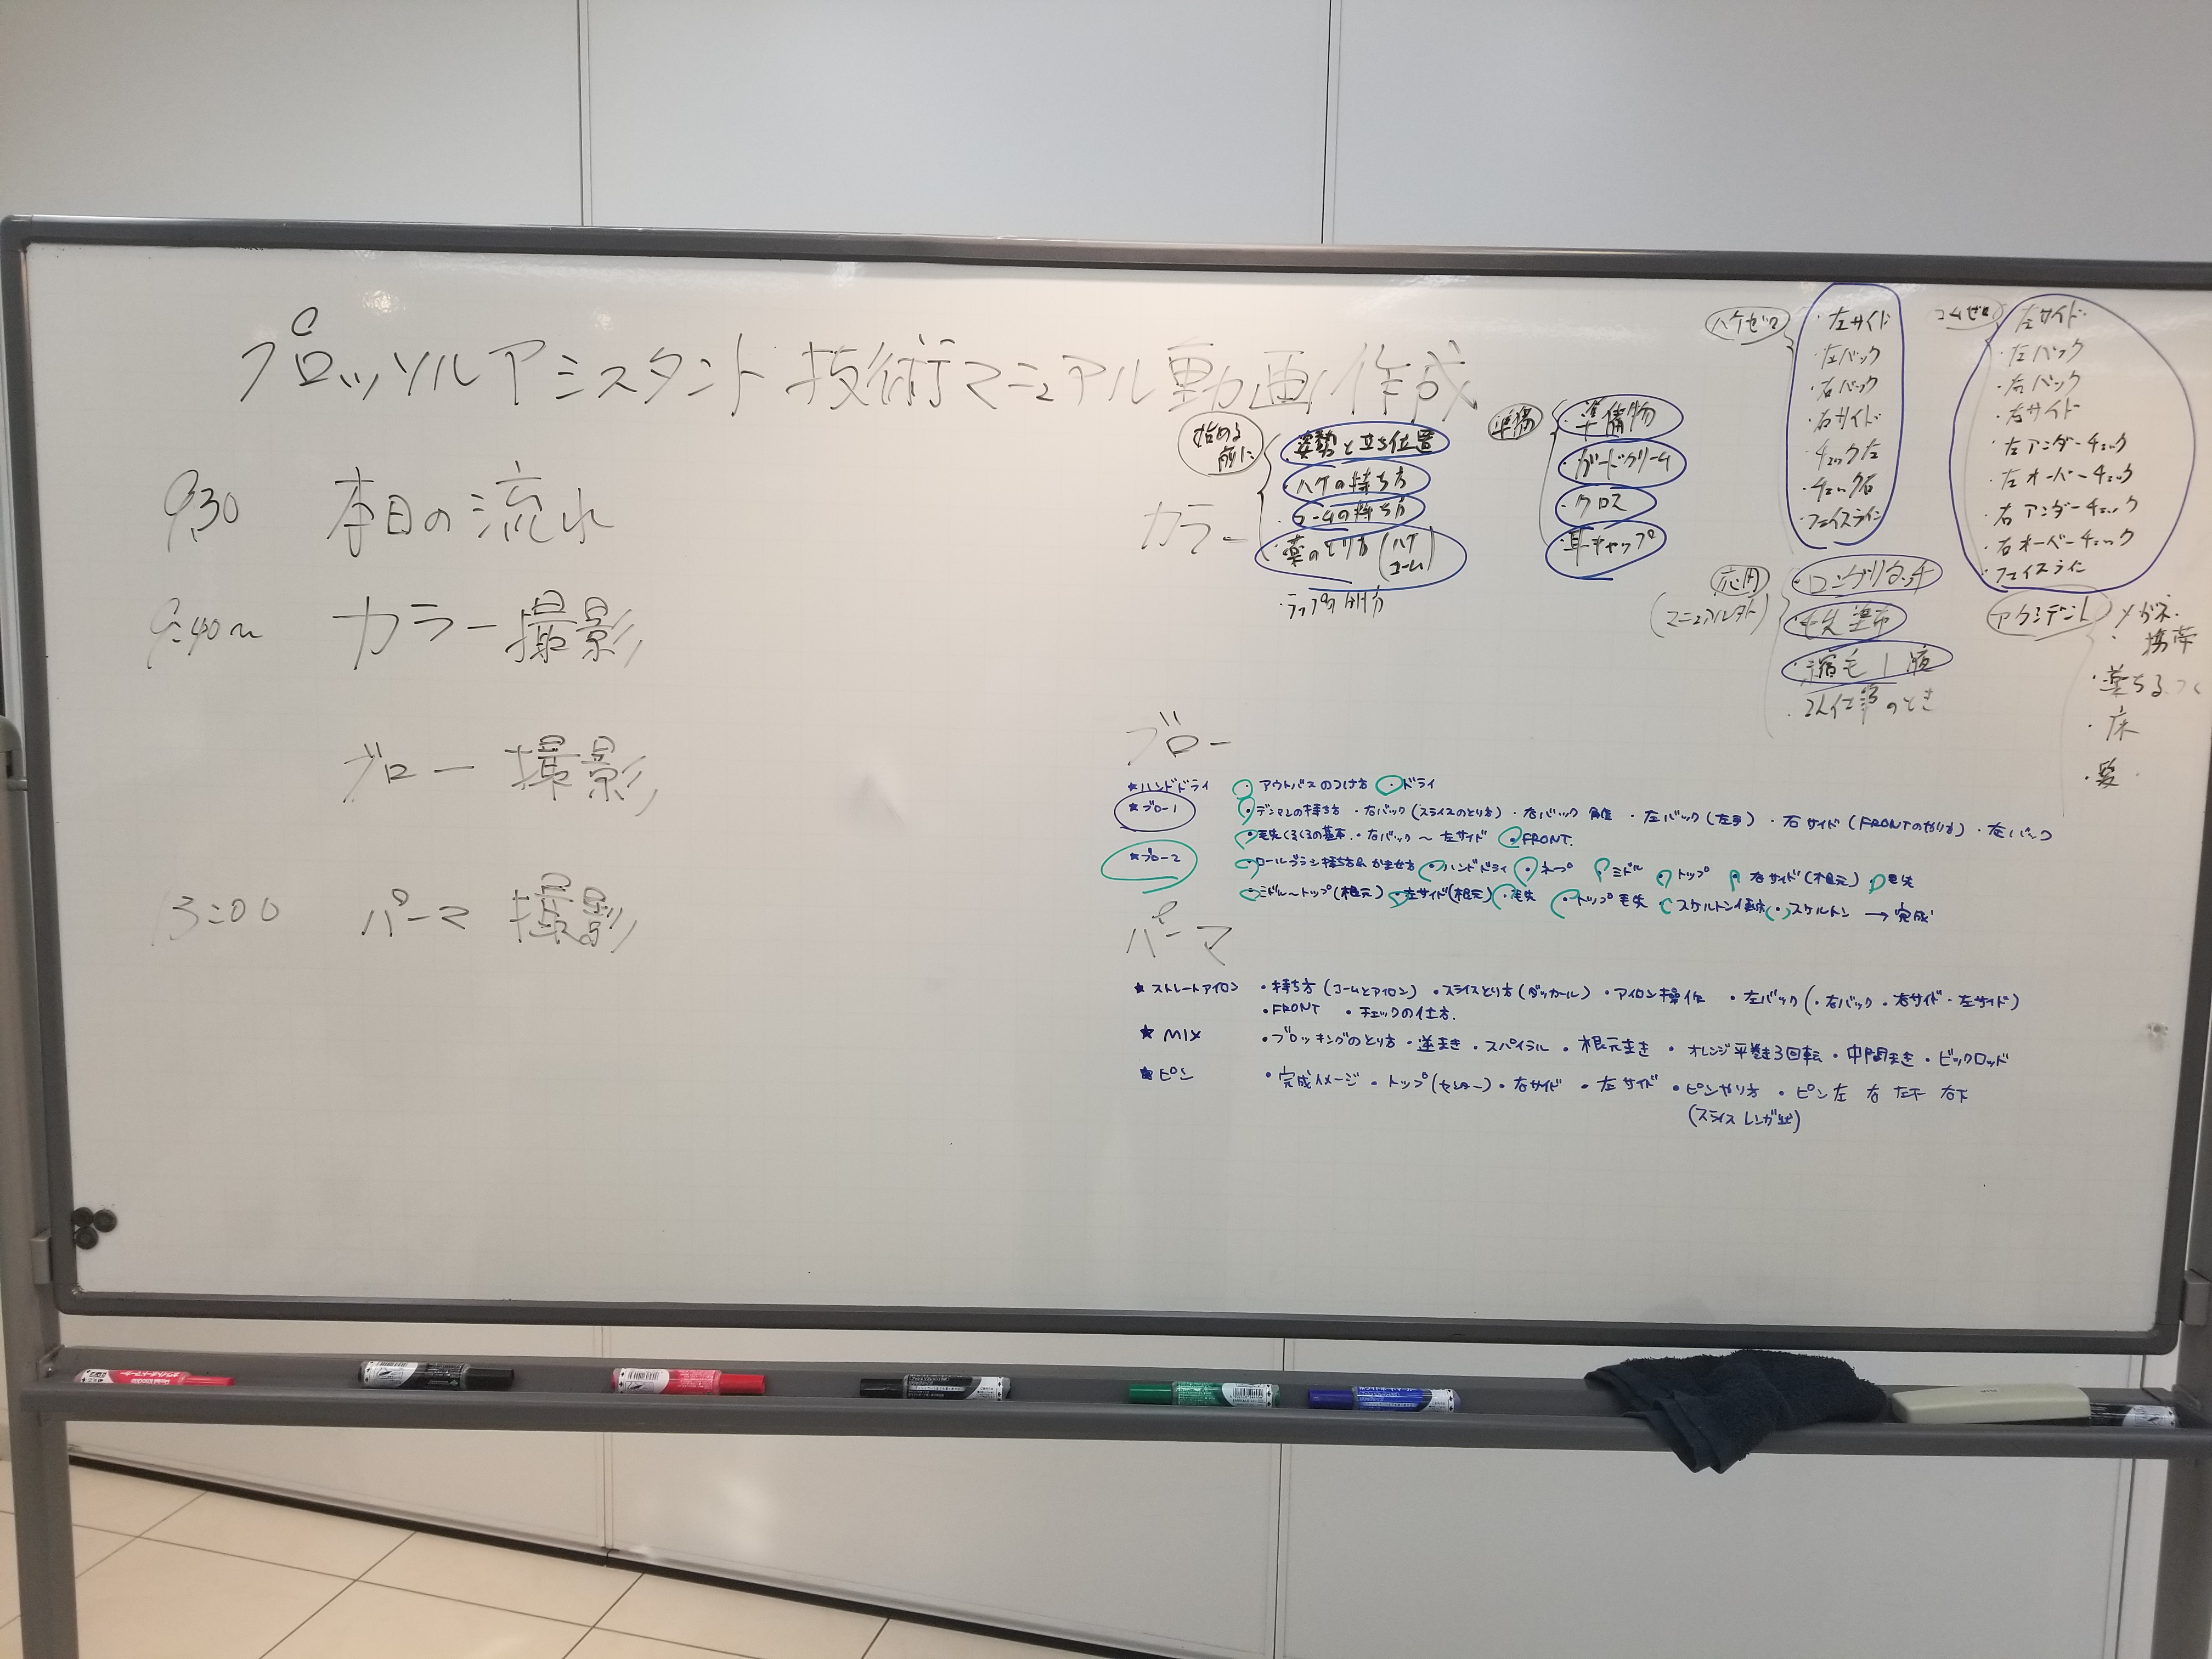 プロッソルアシスタント技術マニュアル動画作成
9:30 本日の流れ
9:40〜 カラー撮影
ブロー撮影
13:00 パーマ撮影
カラー
始める前に
・姿勢と立ち位置
・ハケの持ち方
・コームの持ち方
・薬のとり方(ハケ コーム)
準備
・準備物
・ガードクリーム
・クロス
・耳キャップ
ハケゼロ
・左サイド
・左バック
・右バック
・右サイド
・チェック左
・チェック右
・フェイスライン
コムゼロ
左サイド
・左バック
・右バック
・右サイド
・左アンダーチェック
・左オーバーチェック
・右アンダーチェック
・右オーバーチェック
・フェイスライン
応用
(マニュアル外)
・ロングリタッチ
・毛先塗布
・縮毛1液
・2人仕事のとき
アクシデント
メガネ・
携帯
・薬ちる
・床
・髪
ブロー
★ハンドドライ ・アウトバスのつけ方 ・ドライ
★ブロー1 ・デンマンの持ち方 ・右バック(スライスのとり方) ・右バック ・左バック(左手) ・右サイド(FRONTのやり方) ・左バック
・毛先くるくるの基本 ・右バック〜左サイド ・FRONT.
★ブロー2 ・ロールブラシ持ち方& かませ方 ・ハンドドライ ・ネープ ・ミドル ・トップ ・右サイド(根元) ・毛先
・ミドル〜トップ(根元) ・左サイド(根元) ・毛先 ・トップ毛先 ・スケルトン ・スケルトン → 完成
パーマ
★ストレートアイロン ・持ち方(コームとアイロン) ・スライスとり方(ダッカール) ・アイロン操作 ・左バック(・右バック・右サイド・左サイド)
・FRONT ・チェックの仕方.
★MIX ・ブロッキングのとり方 ・逆まき ・スパイラル ・根元まき ・オレンジ平巻き3回転 ・中間まき ・ビックロッド
★ピン ・完成イメージ ・トップ(センター) ・右サイド ・左サイド ・ピンやり方 ・ピン左 右 左下 右下
(スライス レンガ状)